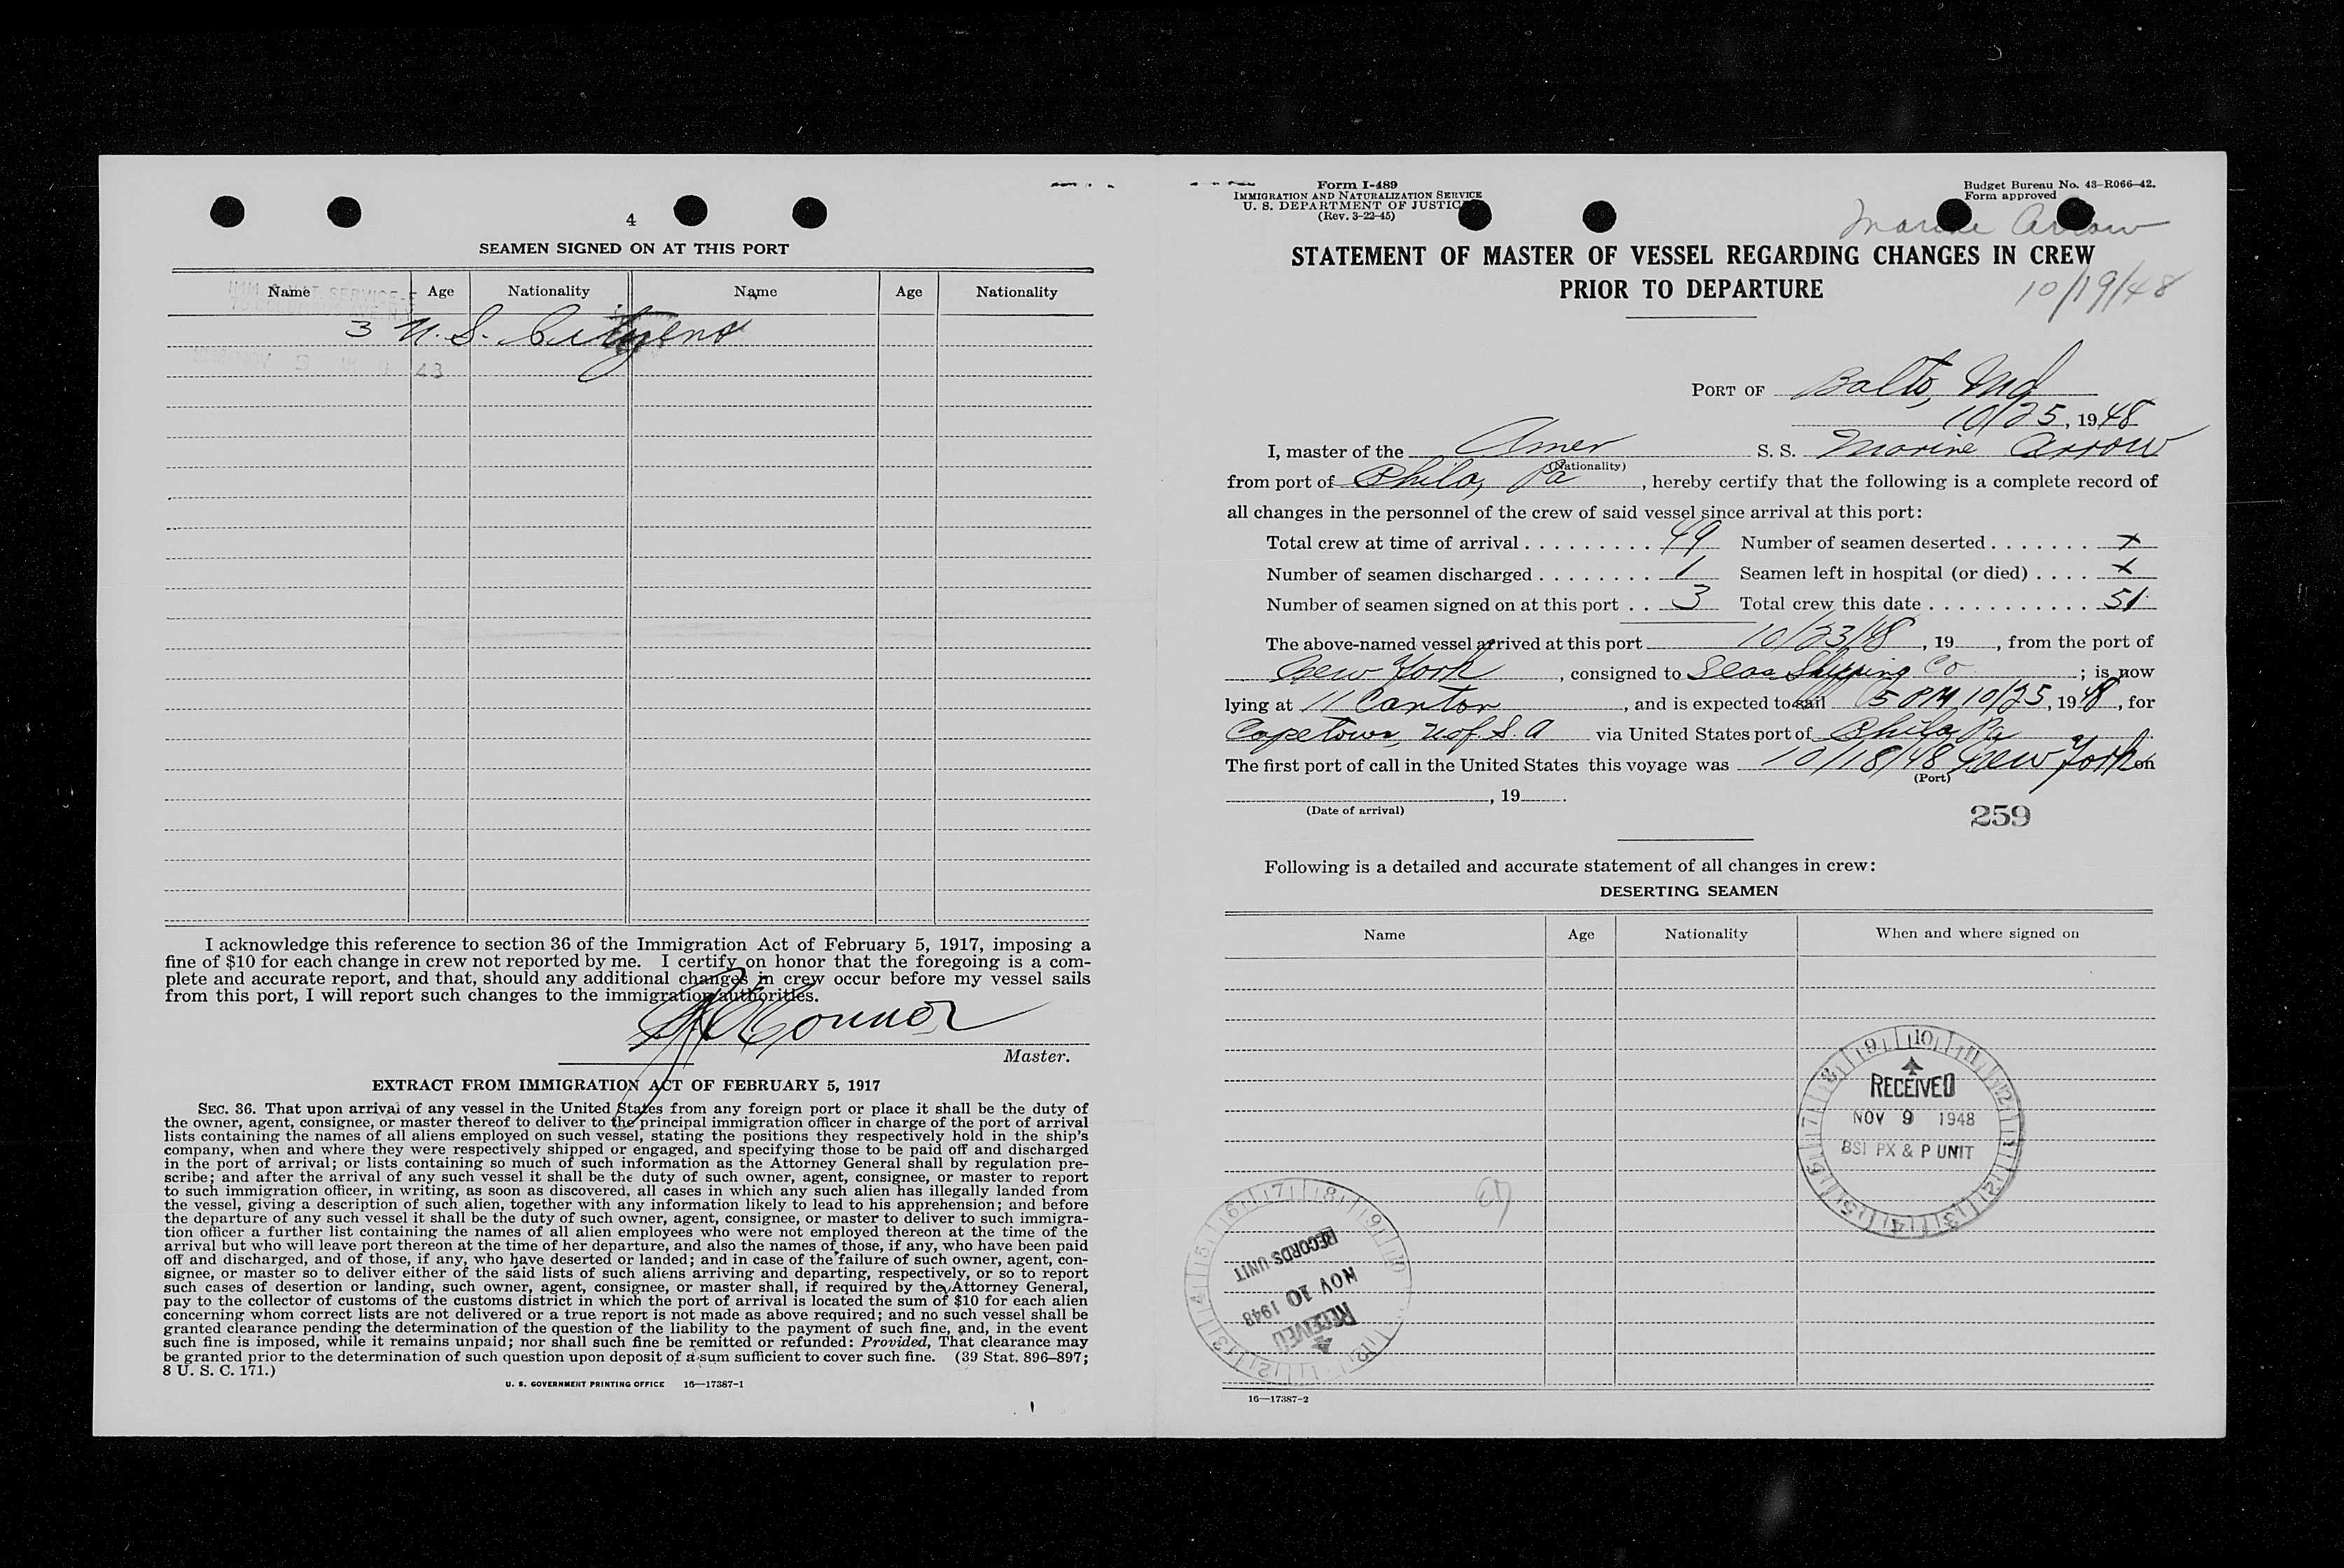 4
SEAMEN SIGNED ON AT THIS PORT
Name Age Nationality Name Age Nationality
3 U. S. Citizens
I acknowledge this reference to section 36 of the Immigration Act of February 5, 1917, imposing a
fine of $10 for each change in crew not reported by me. I certify on honor that the foregoing is a com-
plete and accurate report, and that, should any additional changes in crew occur before my vessel sails
from this port, I will report such changes to the immigration authorities.
O'Connor
Master.
EXTRACT FROM IMMIGRATION ACT OF FEBRUARY 5, 1917
SEC. 36. That upon arrival of any vessel in the United States from any foreign port or place it shall be the duty of
the owner, agent, consignee, or master thereof to deliver to the principal immigration officer in charge of the port of arrival
lists containing the names of all aliens employed on such vessel, stating the positions they respectively hold in the ship's
company, when and where they were respectively shipped or engaged, and specifying those to be paid off and discharged
in the port of arrival; or lists containing so much of such information as the Attorney General shall by regulation pre-
scribe; and after the arrival of any such vessel it shall be the duty of such owner, agent, consignee, or master to report
to such immigration officer, in writing, as soon as discovered, all cases in which any such alien has illegally landed from
the vessel, giving a description of such alien, together with any information likely to lead to his apprehension; and before
the departure of any such vessel it shall be the duty of such owner, agent, consignee, or master to deliver to such immigra-
tion officer a further list containing the names of all alien employees who were not employed thereon at the time of the
arrival but who will leave port thereon at the time of her departure, and also the names of those, if any, who have been paid
off and discharged, and of those, if any, who have deserted or landed; and in case of the failure of such owner, agent, con-
signee, or master so to deliver either of the said lists of such aliens arriving and departing, respectively, or so to report
such cases of desertion or landing, such owner, agent, consignee, or master shall, if required by the Attorney General,
pay to the collector of customs of the customs district in which the port of arrival is located the sum of $10 for each alien
concerning whom correct lists are not delivered or a true report is not made as above required; and no such vessel shall be
granted clearance pending the determination of the question of the liability to the payment of such fine, and, in the event
such fine is imposed, while it remains unpaid; nor shall such fine be remitted or refunded: Provided, That clearance may
be granted prior to the determination of such question upon deposit of a sum sufficient to cover such fine. (39 Stat. 896–897;
8 U. S. C. 171.)
U. S. GOVERNMENT PRINTING OFFICE 16—17387-1
Form I-489
IMMIGRATION AND NATURALIZATION SERVICE
U. S. DEPARTMENT OF JUSTICE
(Rev. 3-22-45)
Budget Bureau No. 43-R066-42.
Form approved
Marine Arrow
STATEMENT OF MASTER OF VESSEL REGARDING CHANGES IN CREW
PRIOR TO DEPARTURE
10/19/48
PORT OF Balto, Md
10/25, 1948
I, master of the Amer S. S. Marine Arrow
(Nationality)
from port of Phila, Pa , hereby certify that the following is a complete record of
all changes in the personnel of the crew of said vessel since arrival at this port:
Total crew at time of arrival . . . . . . . . . 49 Number of seamen deserted . . . . . . . x
Number of seamen discharged . . . . . . . . 1 Seamen left in hospital (or died) . . . . x
Number of seamen signed on at this port . . 3 Total crew this date . . . . . . . . . . . . 51
The above-named vessel arrived at this port 10/23/48 , 19 , from the port of
New York , consigned to Seas Shipping Co ; is now
lying at 11 Canton , and is expected to sail 5 PM 10/25, 1948, for
Capetown, U of. S. A via United States port of Phila, Pa
The first port of call in the United States this voyage was 10/18/48 New York on
(Port)
, 19 .
(Date of arrival)
259
Following is a detailed and accurate statement of all changes in crew:
DESERTING SEAMEN
Name Age Nationality When and where signed on
RECEIVED
NOV 9 1948
BSI PX & P UNIT
RECEIVED
NOV 10 1948
RECORDS UNIT
16—17387-2